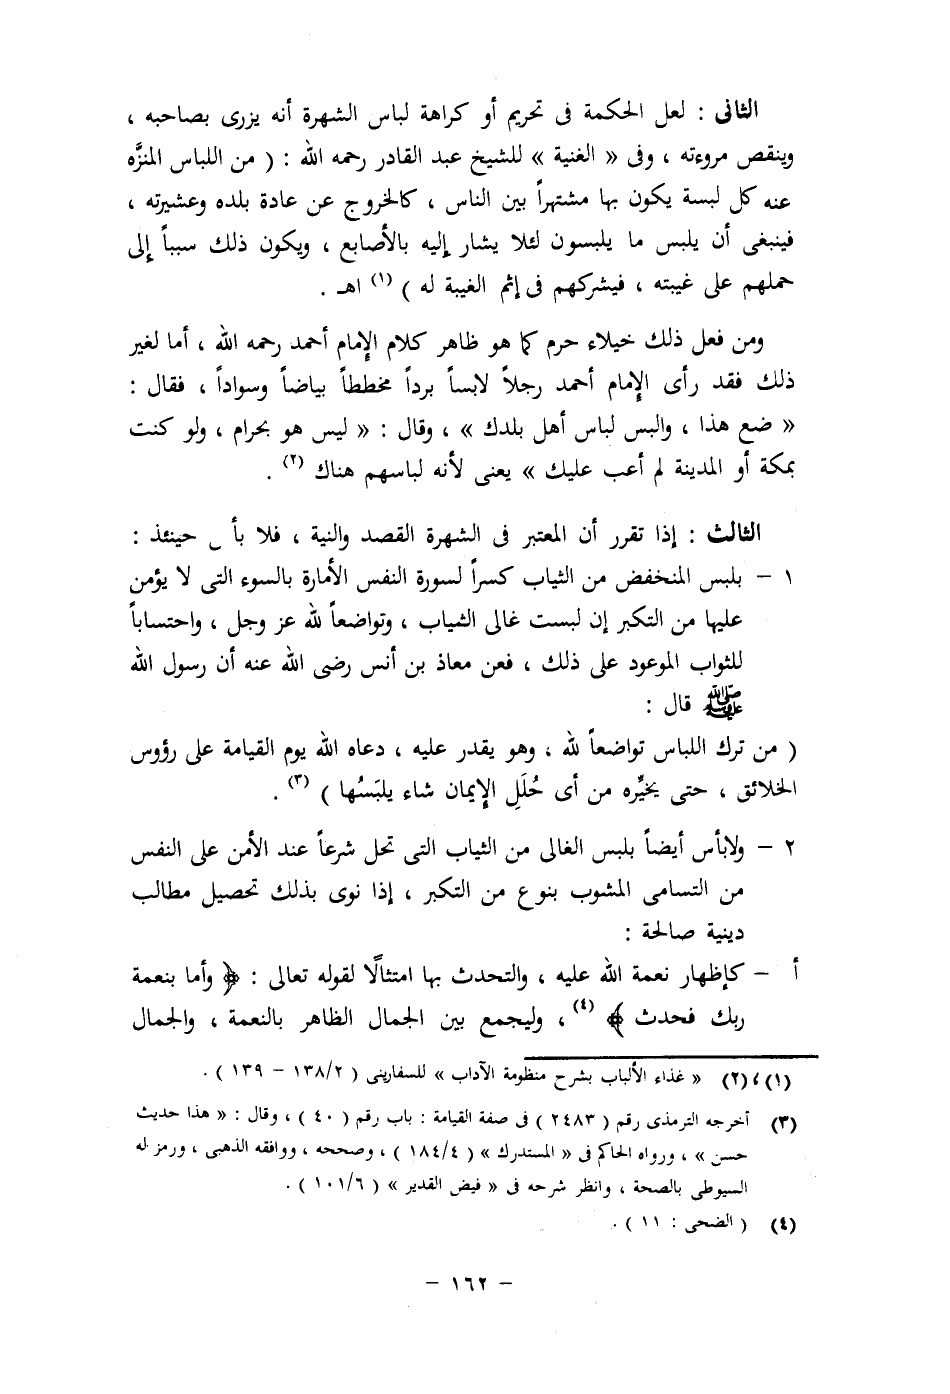 الثانى : لعل الحكمة فى تحريم أو كراهة لباس الشهرة أنه يزرى بصاحبه ،
وينقص مروءته ، وفى « الغنية » للشيخ عبد القادر رحمه الله : ( من اللباس المنزَّه
عنه كل لبسة يكون بها مشتهراً بين الناس ، كالخروج عن عادة بلده وعشيرته ،
فينبغى أن يلبس ما يلبسون لئلا يشار إليه بالأصابع ، ويكون ذلك سبباً إلى
حملهم على غيبته ، فيشركهم فى إثم الغيبة له ) (١) اهـ .
ومن فعل ذلك خيلاء حرم كما هو ظاهر كلام الإمام أحمد رحمه الله ، أما لغير
ذلك فقد رأى الإمام أحمد رجلاً لابساً برداً مخططاً بياضاً وسواداً ، فقال :
« ضع هذا ، والبس لباس أهل بلدك » ، وقال : « ليس هو بحرام ، ولو كنت
بمكة أو المدينة لم أعب عليك » يعنى لأنه لباسهم هناك (٢) .
الثالث : إذا تقرر أن المعتبر فى الشهرة القصد والنية ، فلا بأس حينئذ :
١ – بلبس المنخفض من الثياب كسراً لسورة النفس الأمارة بالسوء التى لا يؤمن
عليها من التكبر إن لبست غالى الثياب ، وتواضعاً لله عز وجل ، واحتساباً
للثواب الموعود على ذلك ، فعن معاذ بن أنس رضى الله عنه أن رسول الله
ﷺ قال :
( من ترك اللباس تواضعاً لله ، وهو يقدر عليه ، دعاه الله يوم القيامة على رؤوس
الخلائق ، حتى يخيِّره من أى حُلَلِ الإيمان شاء يلبَسُها ) (٣) .
٢ – ولابأس أيضاً بلبس الغالى من الثياب التى تحل شرعاً عند الأمن على النفس
من التسامى المشوب بنوع من التكبر ، إذا نوى بذلك تحصيل مطالب
دينية صالحة :
أ – كإظهار نعمة الله عليه ، والتحدث بها امتثالًا لقوله تعالى : ﴿ وأما بنعمة
ربك فحدث ﴾ (٤) ، وليجمع بين الجمال الظاهر بالنعمة ، والجمال
(١)،(٢) « غذاء الألباب بشرح منظومة الآداب » للسفارينى ( ١٣٨/٢ – ١٣٩ ) .
(٣) أخرجه الترمذى رقم ( ٢٤٨٣ ) فى صفة القيامة : باب رقم ( ٤٠ ) ، وقال : « هذا حديث
حسن » ، ورواه الحاكم فى « المستدرك » ( ١٨٤/٤ ) ، وصححه ، ووافقه الذهبى ، ورمز له
السيوطى بالصحة ، وانظر شرحه فى « فيض القدير » ( ١٠١/٦ ) .
(٤) ( الضحى : ١١ ) .
– ١٦٢ –